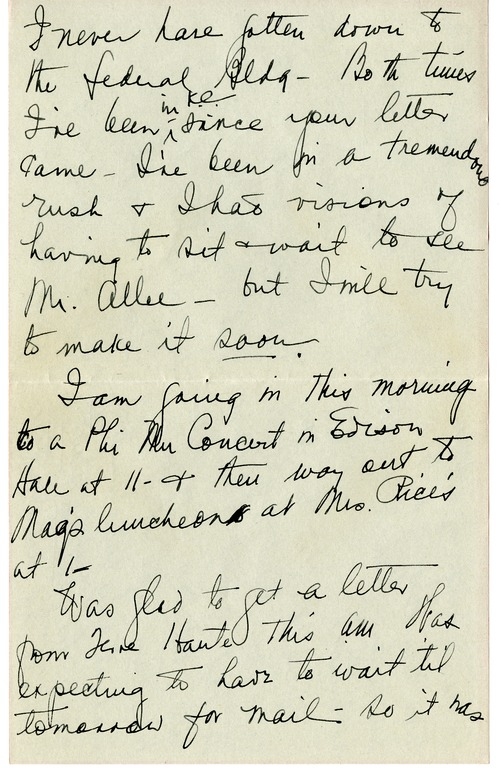 I never have gotten down to
the Federal Bldg - Both times
I've been in K.C. since your letter
came - I've been in a tremendous
rush & I had visions of
having to sit & wait to see
Mr. Allee - but I will try
to make it soon.
I am going in this morning
to a Phi Mu Concert in Edison
Hall at 11 - & then way out to
Mag's luncheon at Mrs. Rice's
at 1 -
Was glad to get a letter
from Terre Haute this am Was
expecting to have to wait til
tomorrow for mail - so it was